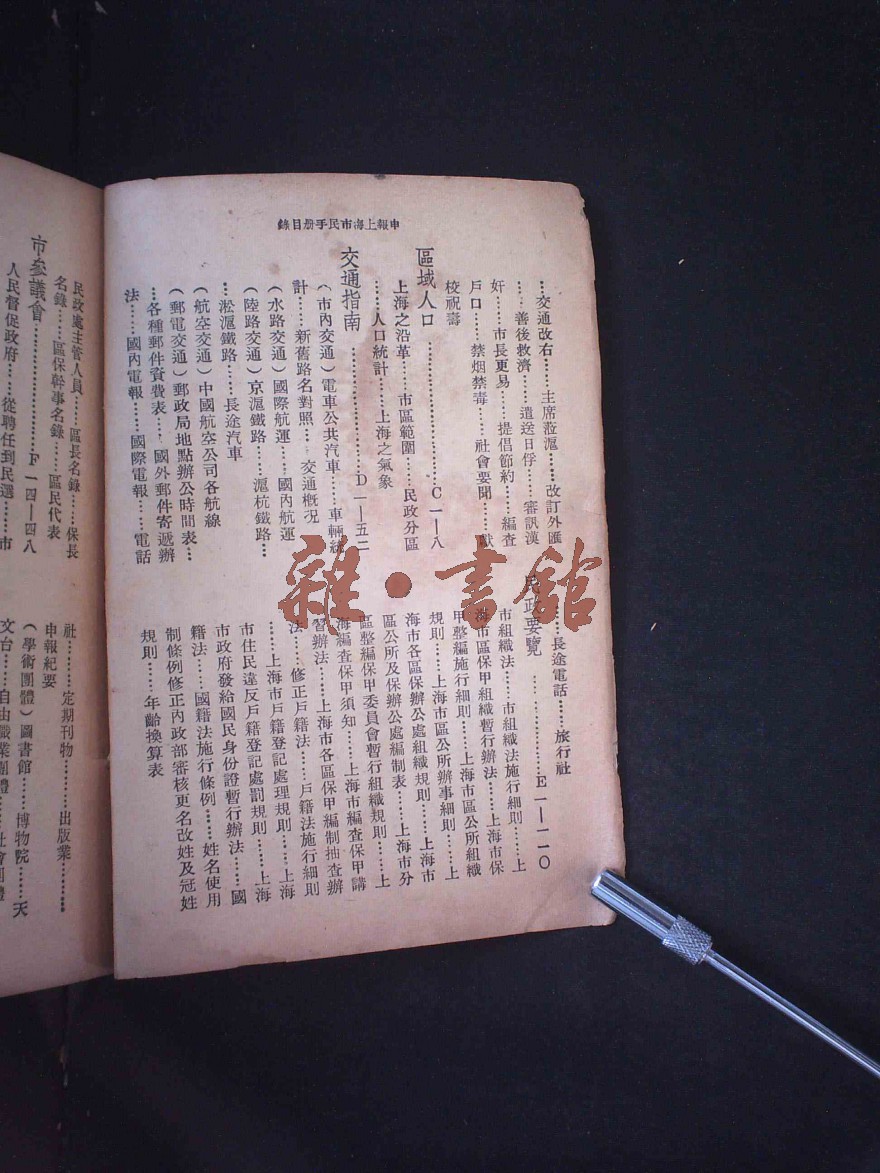 申報上海市民手册目錄
……交通改右……主席蒞滬……改訂外匯
……善後救濟……遣送日俘……審訊漢
奸……市長更易……提倡節約……編查
戶口……禁烟禁毒……社會要聞……獻
校祝壽
區域人口……………………C一—八
上海之沿革……市區範圍……民政分區
……人口統計……上海之氣象
交通指南……………………D一—五二
(市內交通)電車公共汽車……車輛統
計……新舊路名對照……交通概況
(水路交通)國際航運……國內航運
(陸路交通)京滬鐵路……滬杭鐵路……
……淞滬鐵路……長途汽車
(航空交通)中國航空公司各航線
(郵電交通)郵政局地點辦公時間表……
……各種郵件資費表……國外郵件寄遞辦
法……國內電報……國際電報……電話
……長途電話……旅行社
民政要覽……………………E一—一一〇
市組織法……市組織法施行細則……上
海市區保甲組織暫行辦法……上海市保
甲整編施行細則……上海市區公所組織
規則……上海市區公所辦事細則……上
海市各區保辦公處組織規則……上海市
區公所及保辦公處編制表……上海市分
區整編保甲委員會暫行組織規則……上
海編查保甲須知……上海市編查保甲講
習辦法……上海市各區保甲編制抽查辦
法……修正戶籍法……戶籍法施行細則
……上海市戶籍登記處理規則……上海
市住民違反戶籍登記處罰規則……上海
市政府發給國民身份證暫行辦法……國
籍法……國籍法施行條例……姓名使用
制條例修正內政部審核更名改姓及冠姓
規則……年齡換算表
民政處主管人員……區長名錄……保長
名錄……區保幹事名錄……區民代表
市參議會……………………F一四—四八
人民督促政府……從聘任到民選……市
社……定期刊物……出版業……
申報紀要
(學術團體)圖書館……博物院……天
文台……自由職業團體……社會團體
雜·書館